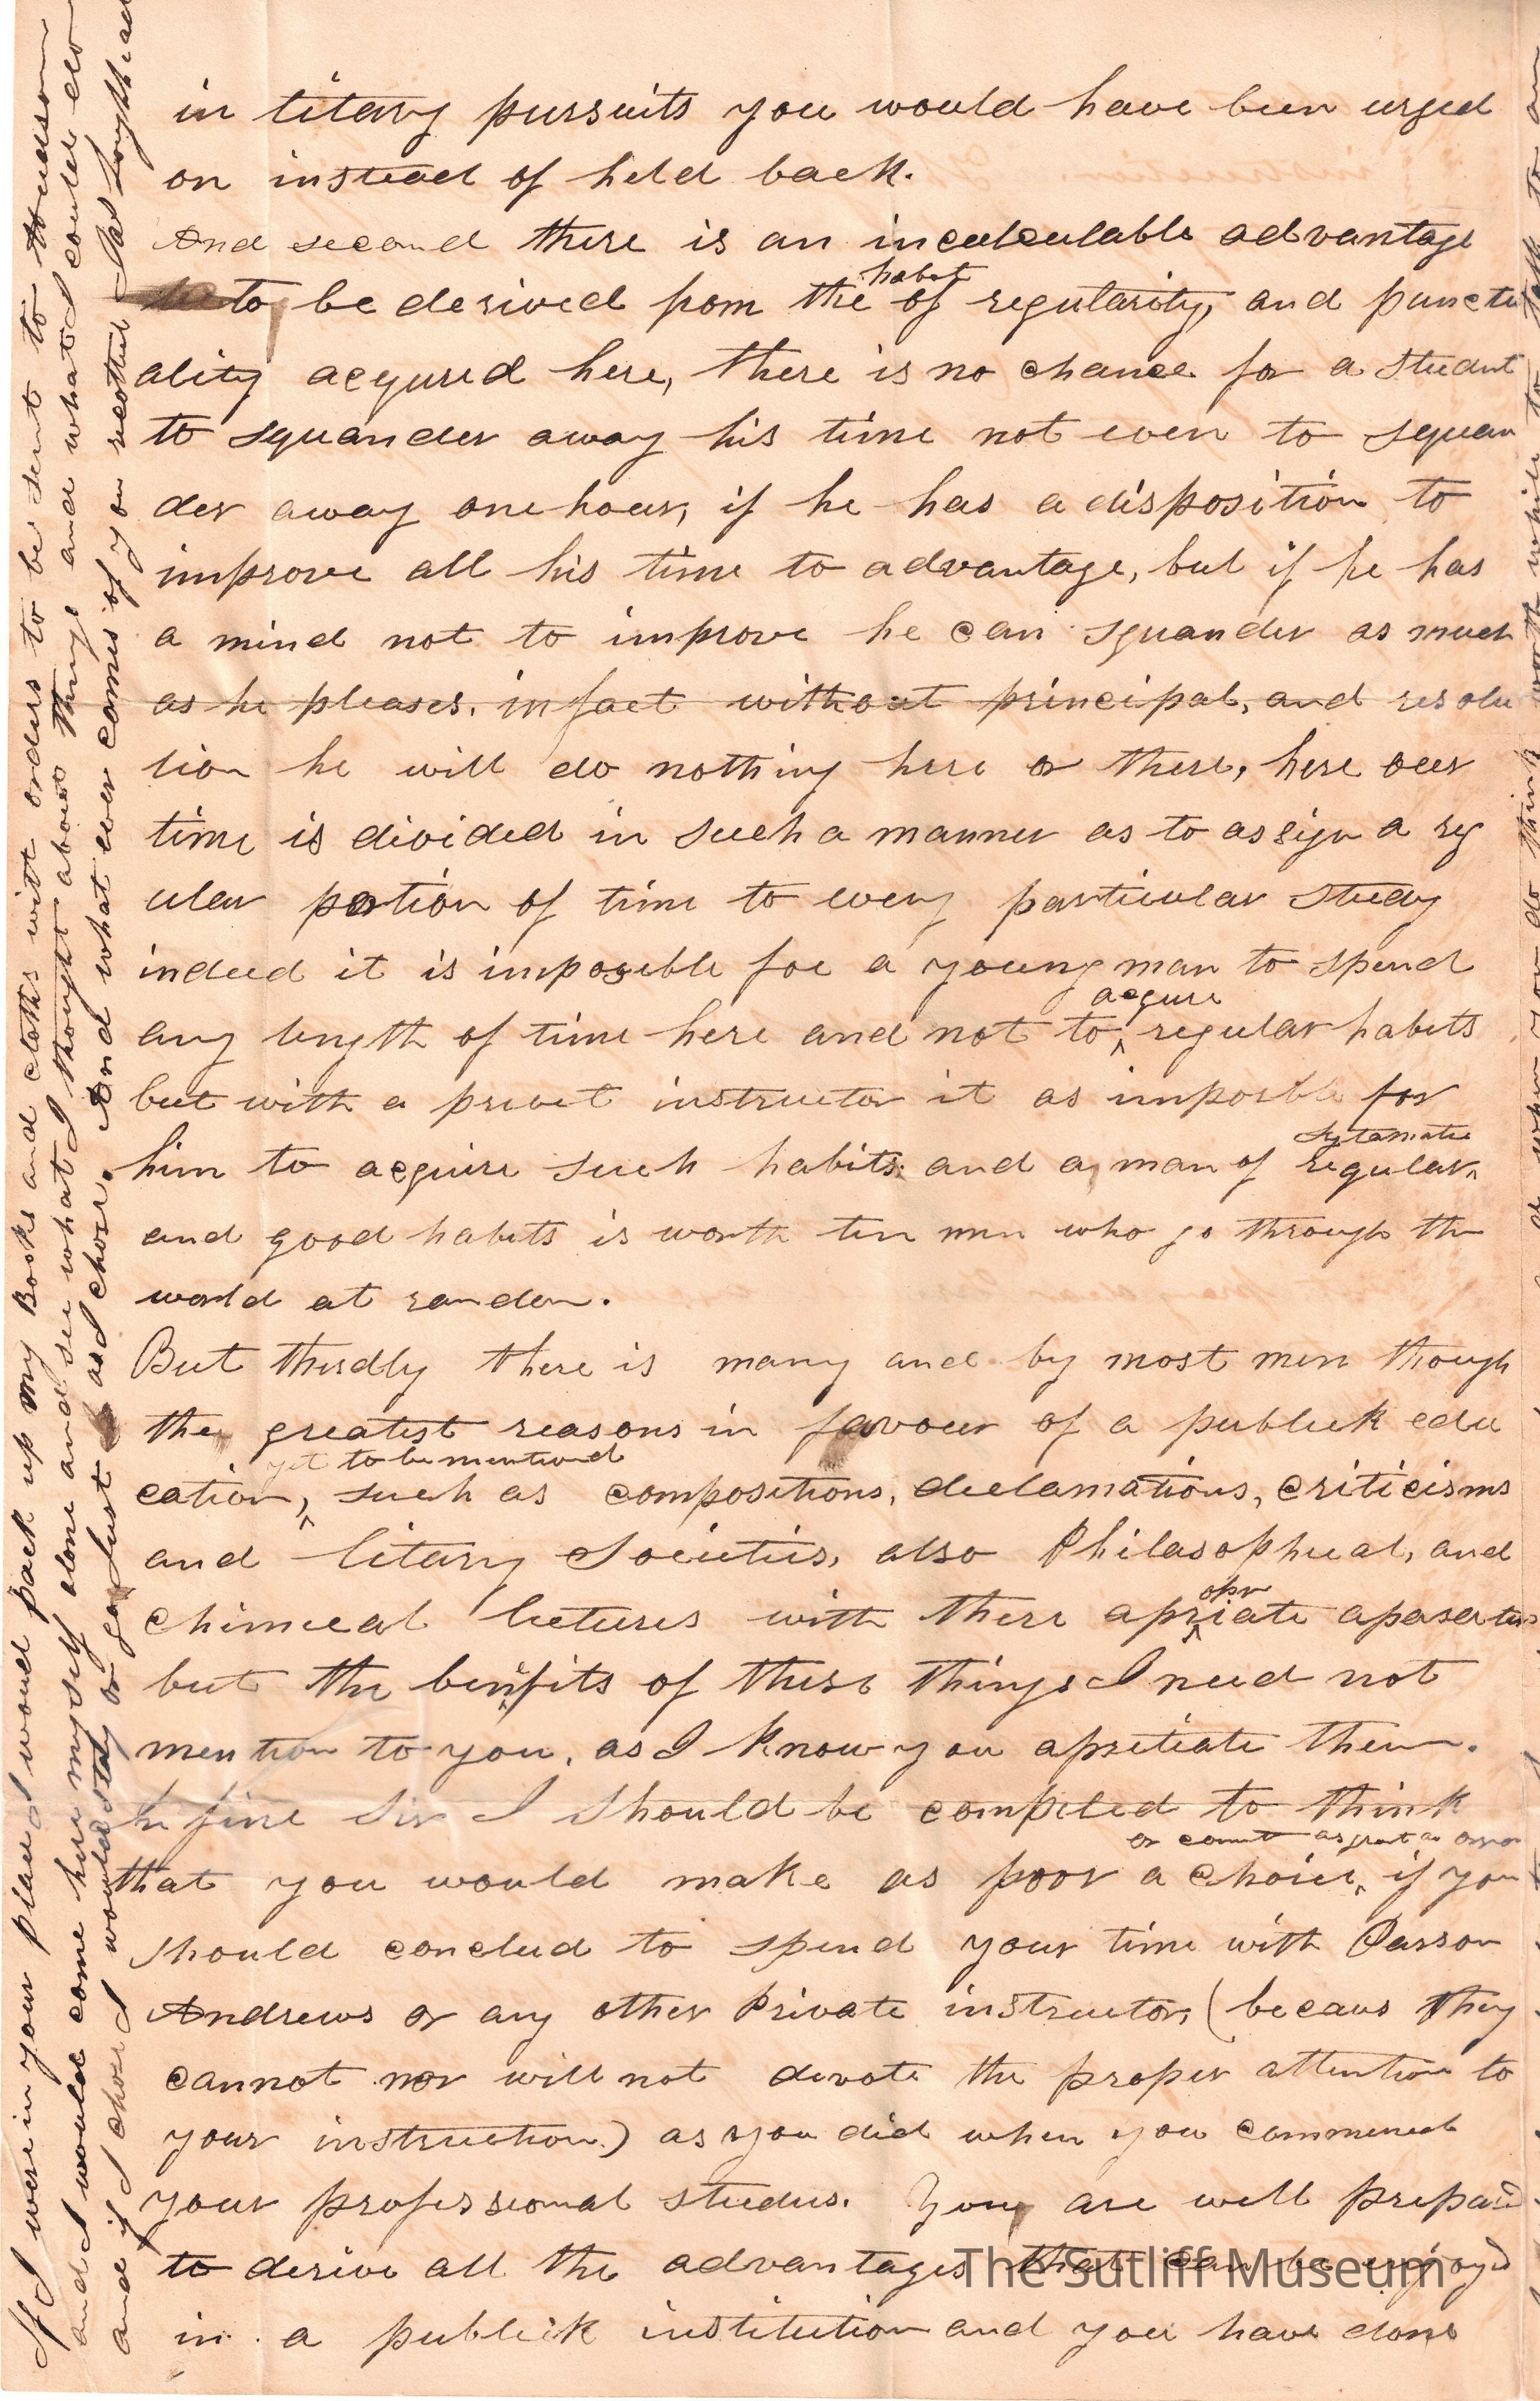 in litarry pursuits you would have been urged
on instead of held back.
And second there is an incalculable advantage
to be derived from the habit of regularity, and punctu
ality acqured here, there is no chance for a student
to squander away his time not even to squan
der away one hour, if he has a disposition to
improve all his time to advantage, but if he has
a mind not to improve he can squander as much
as he pleases. in fact without principal, and resolu
tion he will do nothing here or there, here our
time is divided in such a manner as to assign a reg
ular portion of time to every particular study
indeed it is imposeble for a young man to spend
any length of time here and not to acqure regular habits
but with a privet instructor it as imposble for
him to acquire such habits. and a man of regular systamatic
and good habits is worth ten men who go through the
world at randon.
But thirdly there is many and by most men though
the greatest reasons in favour of a publick edu
cation, yet to be mentioned such as compositions, declamations, criticisms
and litary Societies, also Philosophical, and
chimical lectures with there apropriate aparatus
but the benifits of these things I need not
mention to you, as I know you apretiate them.
In fine Sir I should be compeled to think
that you would make as poor a choice, or commit as great an error if you
should conclud to spend your time with Parson
Andrews or any other Private instructor, (becaus they
cannot nor will not devote the proper attention to
your instruction.) as you did when you commenced
your professional studies. You are well prepared
to derive all the advantages that can be enjoyed
in a publick institution and you have done
If I were in your place I would pack up my Books and cloths with orders to be sent to Hudson
and I would come here myself alone and see what I thought about things and what I could do
and if I chose I would stay or go just as I chose. And what ever comes of you neather
when you do think worth while to
The Sutliff Museum